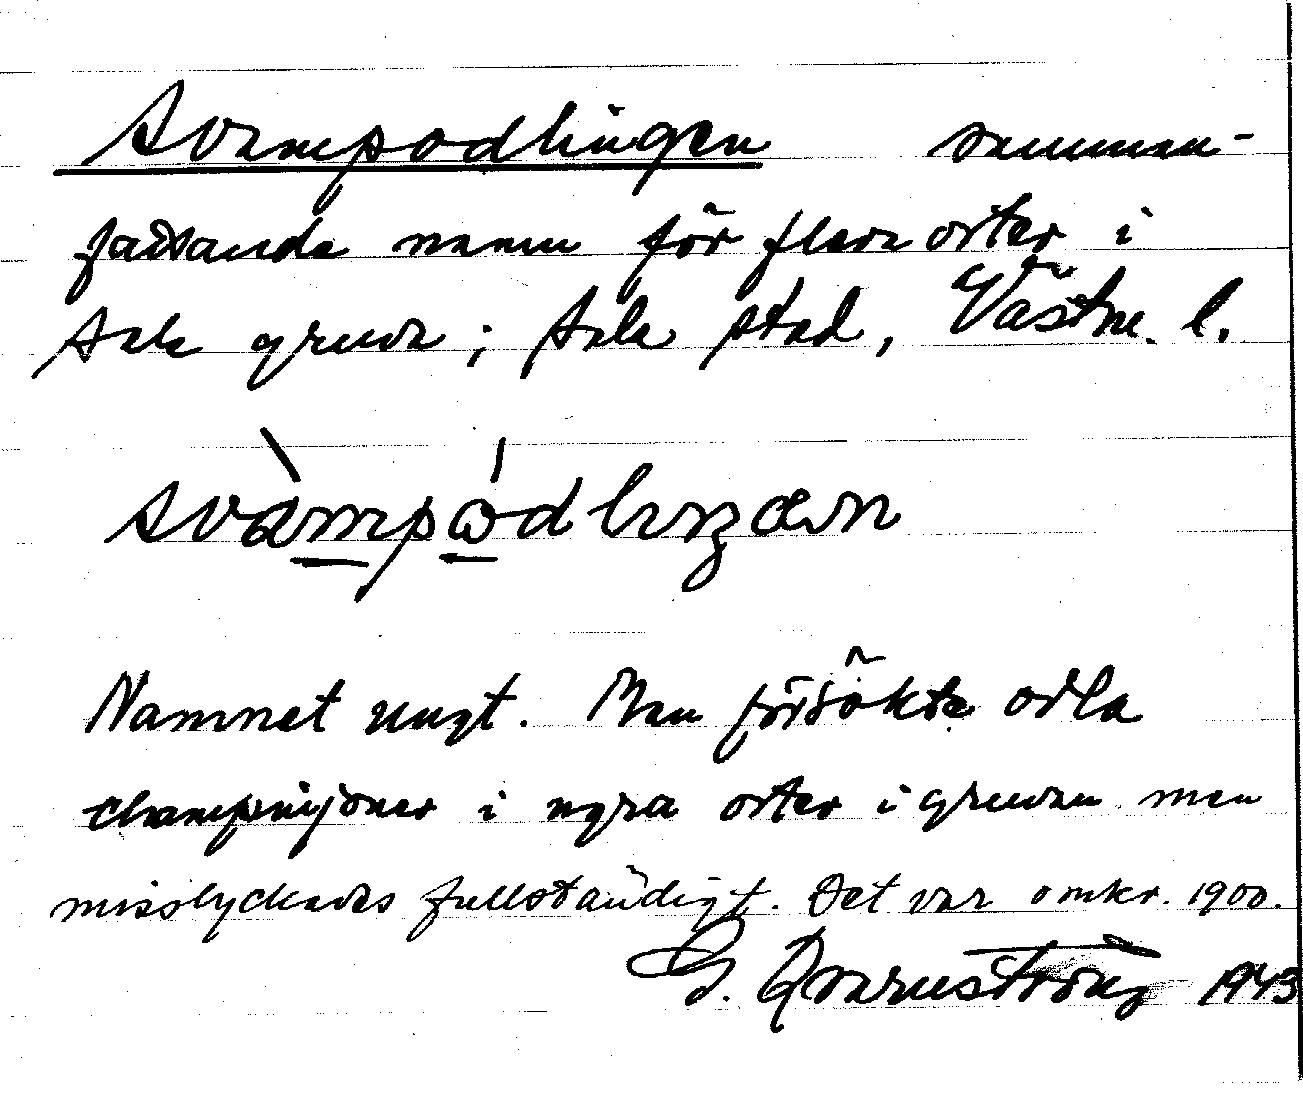 Svampodlingen samman-
fattande namn för flera orter i
Sala gruva; Sala stad, Västm. l.
svàmpódlıŋæn
Namnet ungt. Man försökte odla
champinjoner i ngra orter i gruvan men
misslyckades fullständigt. Det var omkr. 1900.
G. Qvarnström 1943